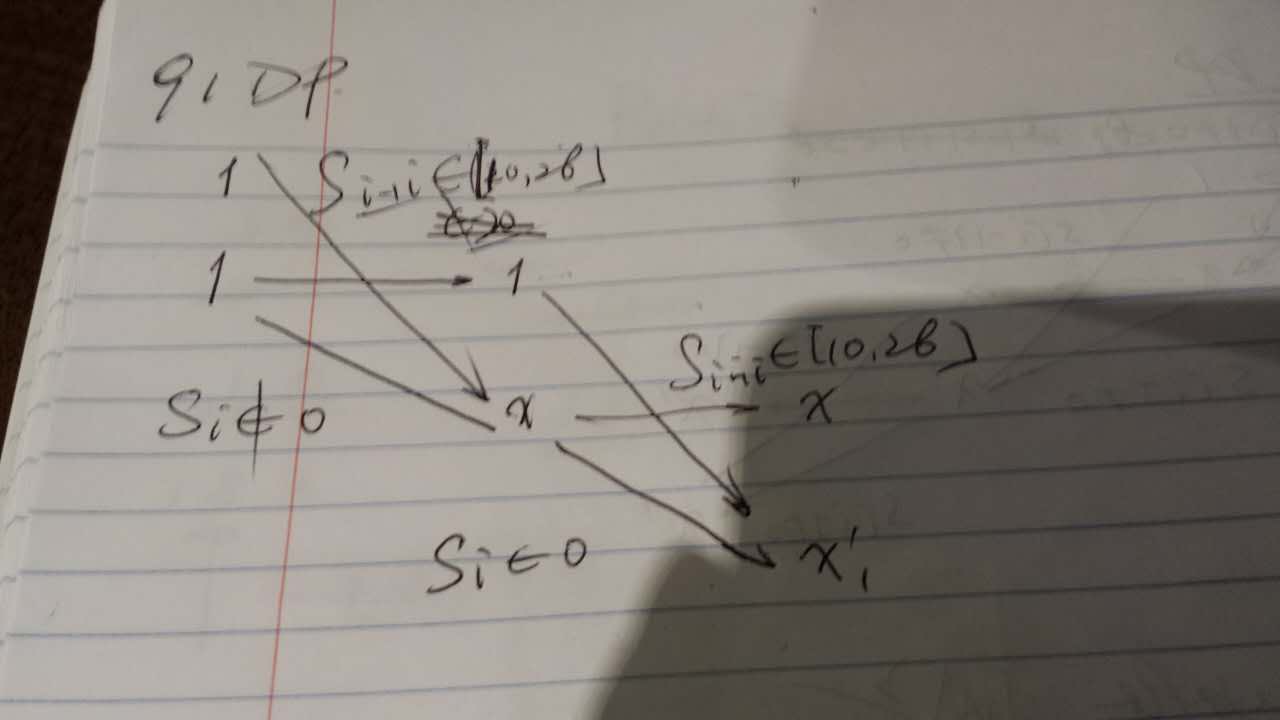 91 DP
1 Si-1i ∈ [10,26]
1 1
Si-1i ∈ [10,26]
Si ∉ 0 x x
Si ∈ 0 x'1